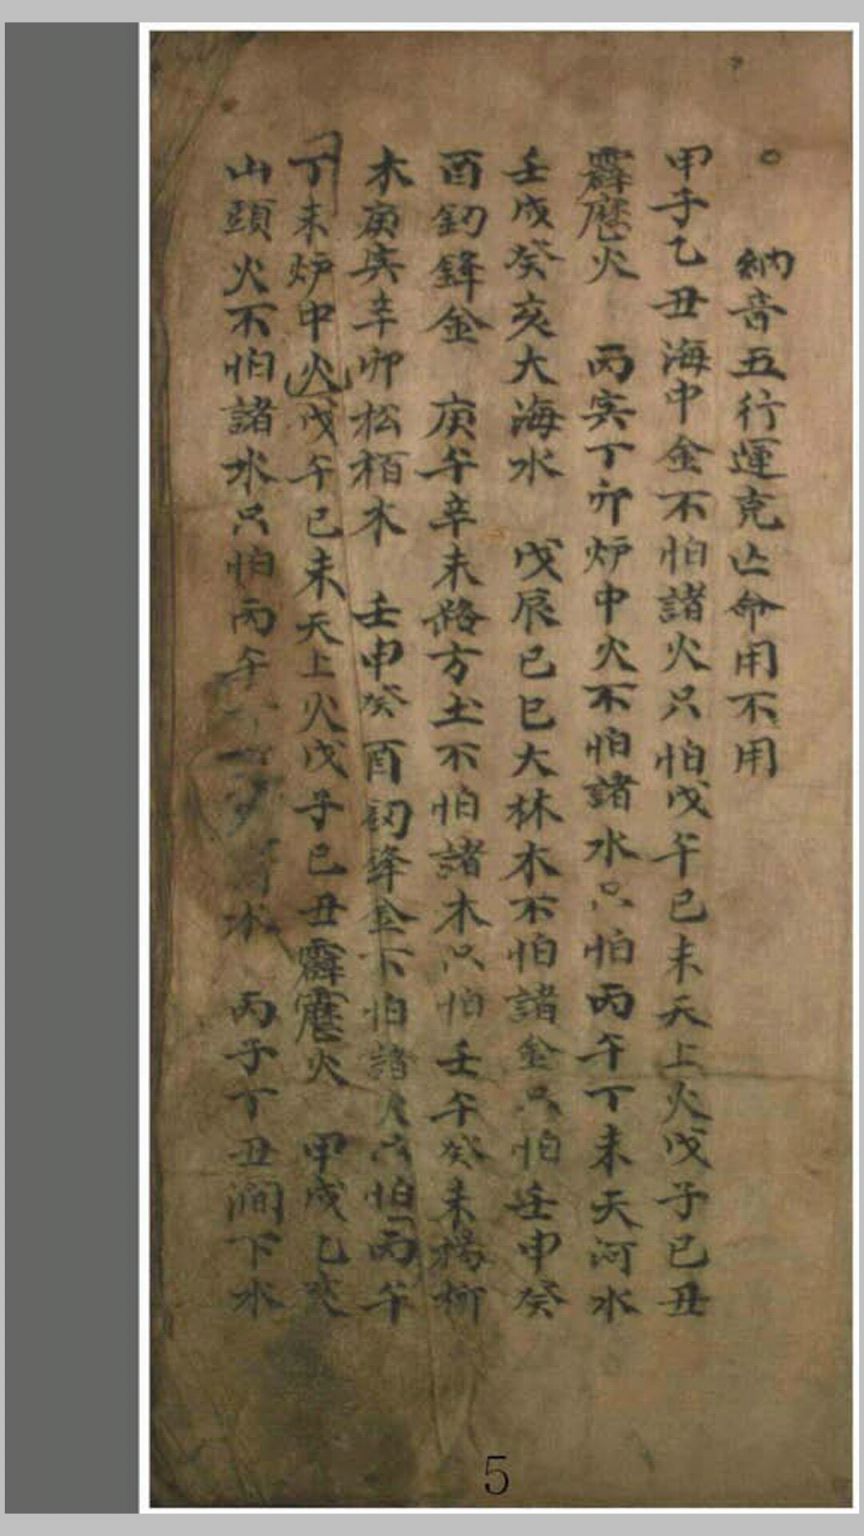 ○ 納音五行運克亡命用不用
甲子乙丑海中金不怕諸火只怕戊午己未天上火戊子己丑
霹靂火 丙寅丁卯炉中火不怕諸水只怕丙午丁未天河水
壬戌癸亥大海水 戊辰己巳大林木不怕諸金只怕壬申癸
酉釰鋒金 庚午辛未路方土不怕諸木只怕壬午癸未楊柳
木庚寅辛卯松栢木 壬申癸酉釰鋒金不怕諸火只怕丙午
丁未炉中火戊午己未天上火戊子己丑霹靂火 甲戌乙亥
山頭火不怕諸水只怕丙午 水 丙子丁丑澗下水
5